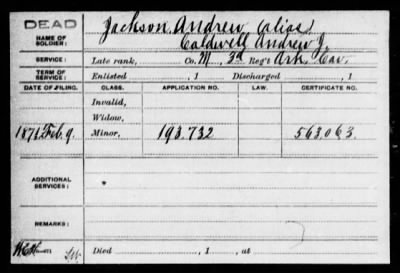 DEAD
NAME OF SOLDIER: Jackson, Andrew (alias)
Caldwell Andrew J.
SERVICE: Late rank, Co. M, 3rd Reg't Ark. Cav.
TERM OF SERVICE: Enlisted , 1 Discharged , 1
DATE OF FILING. CLASS. APPLICATION NO. LAW. CERTIFICATE NO.
Invalid,
Widow,
1871. Feb. 9. Minor, 193.732 563.063.
ADDITIONAL SERVICES:
REMARKS:
Died , 1 , at